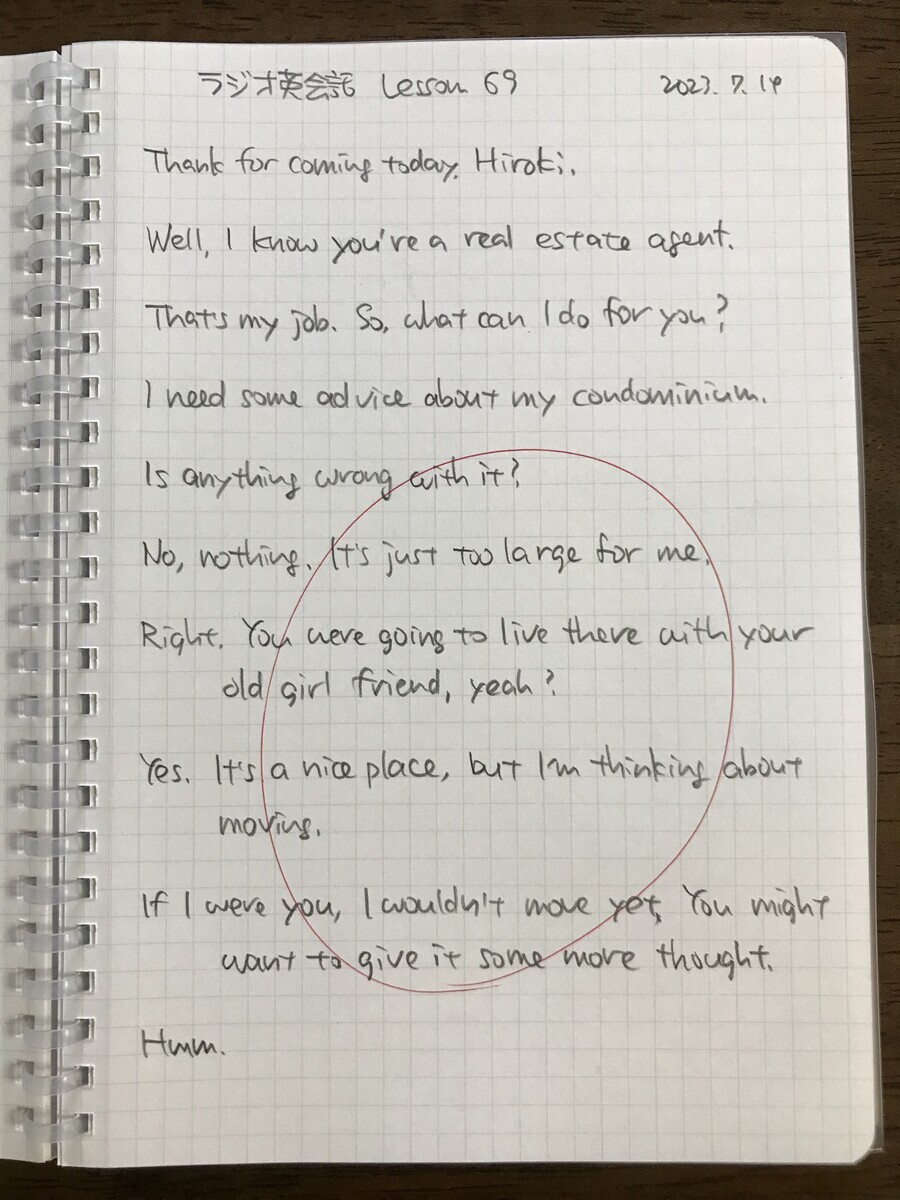 ラジオ英会話 Lesson 69 2023. 7. 14
Thank for coming today, Hiroki.
Well, I know you're a real estate agent.
That's my job. So, what can I do for you?
I need some advice about my condominium.
Is anything wrong with it?
No, nothing. It's just too large for me.
Right. You were going to live there with your
old girl friend, yeah?
Yes. It's a nice place, but I'm thinking about
moving.
If I were you, I wouldn't move yet. You might
want to give it some more thought.
Hmm.